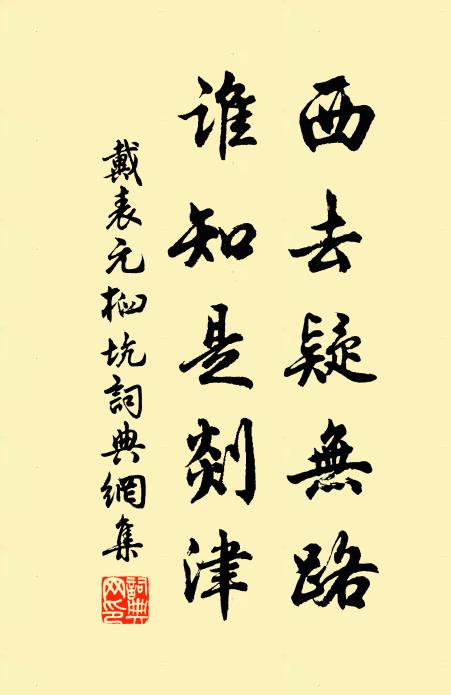 西去疑無路
誰知是剡津
戴表元柂坑詞典網集
詞典網印